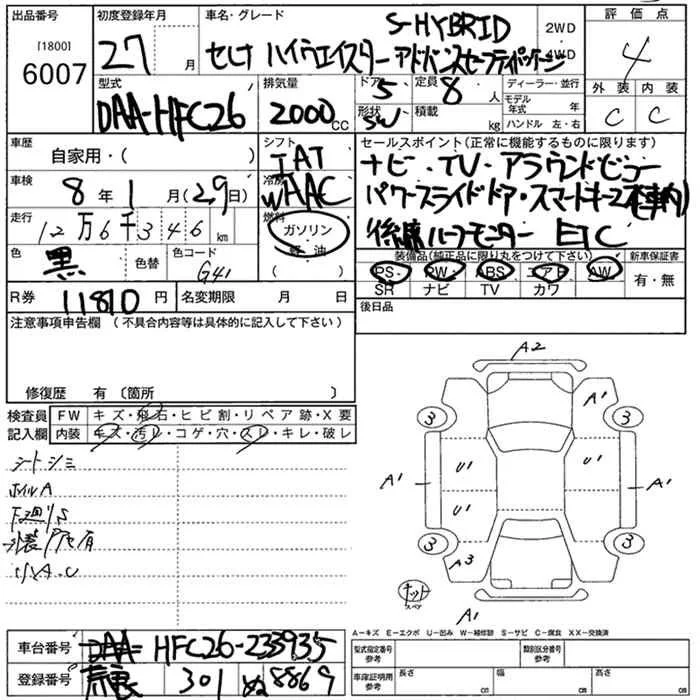 出品番号
[1800]
6007
初度登録年月
27 月
車名・グレード
S-HYBRID
セレナ ハイウェイスター アドバンスセーフティパッケージ
2WD
4WD
評価点
4
外装 内装
C C
型式
DAA-HFC26
排気量
2000 CC
ドア 5
形状 SW
定員 8 人
積載 kg
ディーラー・並行
モデル年式 年
ハンドル 左・右
車歴
自家用・( )
シフト
IAT
車検
8年 1月(29日)
冷房
WAAC
走行
12万6千346km
燃料
ガソリン
軽油
( )
色
黒
色替
色コード
G41
R券 11810 円
名変期限 月 日
セールスポイント(正常に機能するものに限ります)
ナビ・TV・アラウンドビュー
パワースライドドア・スマートキー
後席ルーフモニター ETC
装備品(純正品に限り丸をつけて下さい)
PS・ PW・ ABS エアB AW
SR ナビ TV カワ
新車保証書
有・無
後日品
注意事項申告欄(不具合内容等は具体的に記入して下さい)
修復歴 有〔箇所 〕
検査員記入欄
FW キズ・飛石・ヒビ割・リペア跡・X要
内装 キズ・汚レ・コゲ・穴・スレ・キレ・破レ
シートシミ
ホイルA
下廻りS
A2
A1
3
3
U1
U1
A1
A1
U1
3
3
A3
A1
A-キズ E-エクボ U-凹み W-補修跡 S-サビ C-腐食 XX-交換済
車台番号 DAA HFC26-233935
登録番号 301 ぬ 8869
型式指定番号
参考
類別区分番号
参考
車庫証明用
参考
長さ cm
幅 cm
高さ cm